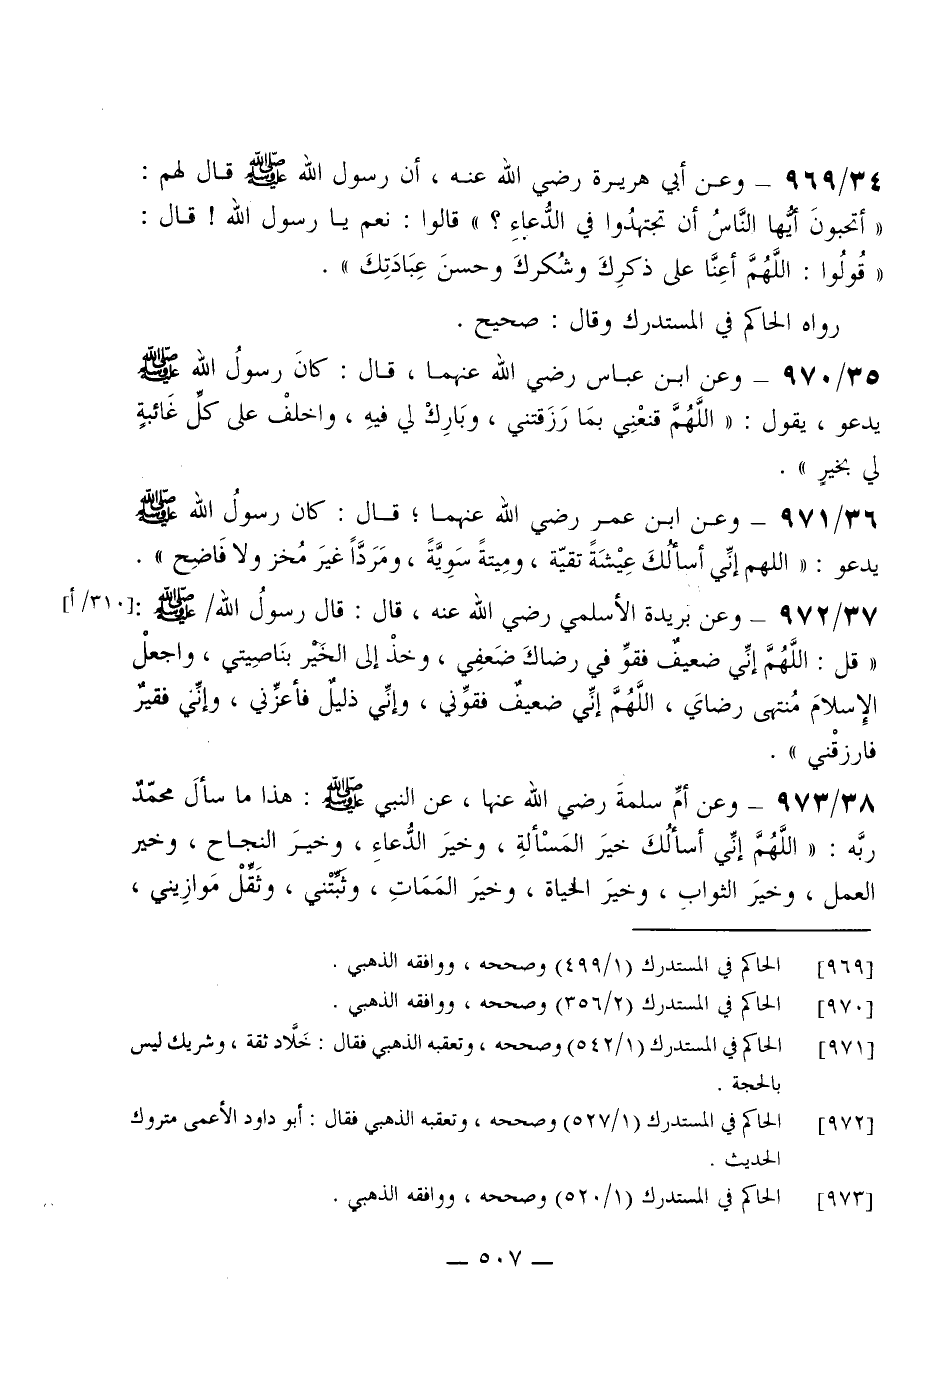 ٩٦٩/٣٤ ــ وعـن أبي هريـرة رضي الله عنـه ، أن رسول الله ﷺ قـال لهم :
« أتحبونَ أيُّها النَّاسُ أن تجتهدُوا في الدُّعاءِ ؟ » قالوا : نعم يـا رسول الله ! قـال :
« قُولُوا : اللَّهُمَّ أعِنَّا على ذكرِكَ وشُكركَ وحسنَ عِبَادَتِكَ » .
رواه الحاكم في المستدرك وقال : صحيح .
٩٧٠/٣٥ ــ وعن ابـن عبـاس رضي الله عنهمـا ، قـال : كانَ رسولُ الله ﷺ
يدعو ، يقول : « اللَّهُمَّ قنعْنِي بمَا رَزَقتني ، وبَارِكْ لي فيهِ ، واخلفْ على كلِّ غَائبةٍ
لي بخيرٍ » .
٩٧١/٣٦ ــ وعـن ابـن عمـر رضي الله عنهمـا ؛ قـال : كان رسولُ الله ﷺ
يدعو : « اللهم إنِّي أسألُكَ عِيْشَةً تقيّة ، ومِيتةً سَوِيَّةً ، ومَرَدَّاً غيرَ مُخز ولا فَاضِح » .
٩٧٢/٣٧ ــ وعن بريدة الأسلمي رضي الله عنه ، قال : قال رسولُ الله/ ﷺ : [٣١٠/أ]
« قل : اللَّهُمَّ إنِّي ضعيفٌ فقوِّ في رضاكَ ضَعفِي ، وخذْ إلى الخَيْر بنَاصِيتي ، واجعلْ
الإسلامَ مُنتهى رضايَ ، اللَّهُمَّ إنِّي ضعيفٌ فقوِّني ، وإنِّي ذليلٌ فأعزِّني ، وإنِّي فقيرٌ
فارزقْني » .
٩٧٣/٣٨ ــ وعن أمِّ سلمةَ رضي الله عنها ، عن النبي ﷺ : هذا ما سألَ محمّدٌ
ربَّه : « اللَّهُمَّ إنِّي أسألُكَ خيرَ المَسْألةِ ، وخيرَ الدُّعاءِ ، وخيـرَ النجـاح ، وخير
العمل ، وخيرَ الثوابِ ، وخيرَ الحياة ، وخيرَ المَمَاتِ ، وثبِّتْني ، وثَقِّلْ مَوازِيني ،
[٩٦٩] الحاكم في المستدرك (٤٩٩/١) وصححه ، ووافقه الذهبي .
[٩٧٠] الحاكم في المستدرك (٣٥٦/٢) وصححه ، ووافقه الذهبي .
[٩٧١] الحاكم في المستدرك (٥٤٢/١) وصححه ، وتعقبه الذهبي فقال : خَلَّاد ثقة ، وشريك ليس
بالحجة .
[٩٧٢] الحاكم في المستدرك (٥٢٧/١) وصححه ، وتعقبه الذهبي فقال : أبو داود الأعمى متروك
الحديث .
[٩٧٣] الحاكم في المستدرك (٥٢٠/١) وصححه ، ووافقه الذهبي .
ــ ٥٠٧ ــ